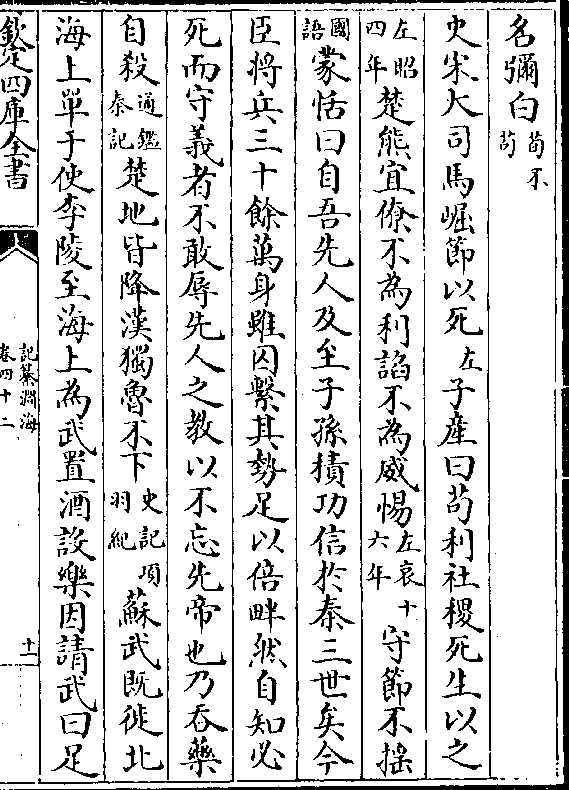 名彌白荀不茍
史宋大司馬崛節以死左子産曰茍利社稷死生以之
左昭四年楚熊宜僚不為利諂不為威惕左哀十六年守節不揺
國語蒙恬曰自吾先人及至子孫積功信於秦三世矣今
臣將兵三十餘萬身雖囚繫其勢足以倍畔然自知必
死而守義者不敢辱先人之教以不忘先帝也乃吞藥
自殺通鑑秦記楚地皆降漢獨魯不下史記項羽紀蘇武既徙北
海上單于使李陵至海上為武置酒設樂因請武曰足
欽定四庫全書
記纂淵海
卷四十二
十一